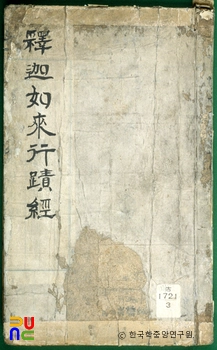 釋迦如來行蹟經
1721
3
© 한국학중앙연구원